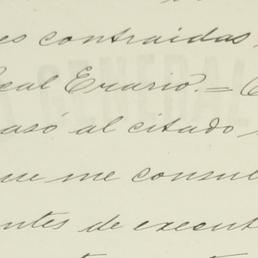 es contraidas
cal Erario. =
asó al citado
que me consul
ntes de execut